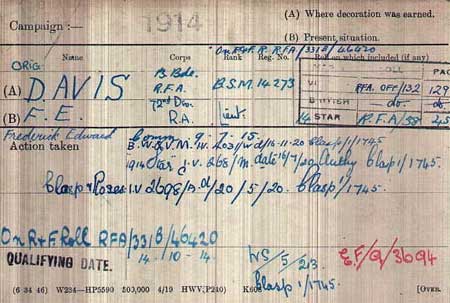 Campaign :— 1914
(A) Where decoration was earned.
(B) Present situation.
On R & F. R. RFA/331B/46420
Name Corps Rank Reg. No. Roll on which included (if any)
ORIG:
(A) DAVIS B. Bde. R.F.A. B.S.M. 14273
(B) F.E. 72nd Div. R.A. Lieut.
ROLL PAGE
VI RFA. OFF/132 129
BRITISH do. do.
14 STAR R.F.A/58
Frederick Edward Comm 9-7-15.
Action taken
B.W. & V.M. 16-11-20 Clasp/1745
1914 Star Clasp/1745.
Clasp & Roses I.V 269E/ /20/5/20. Clasp/1745.
On R & F Roll RFA/331B/46420
QUALIFYING DATE. 14.-10-14.
/5/23.
Clasp 1/1745.
E.F/9/3694
(6 34 46) W234—HP5590 500,000 4/19 HWV(P240) K608 [OVER.